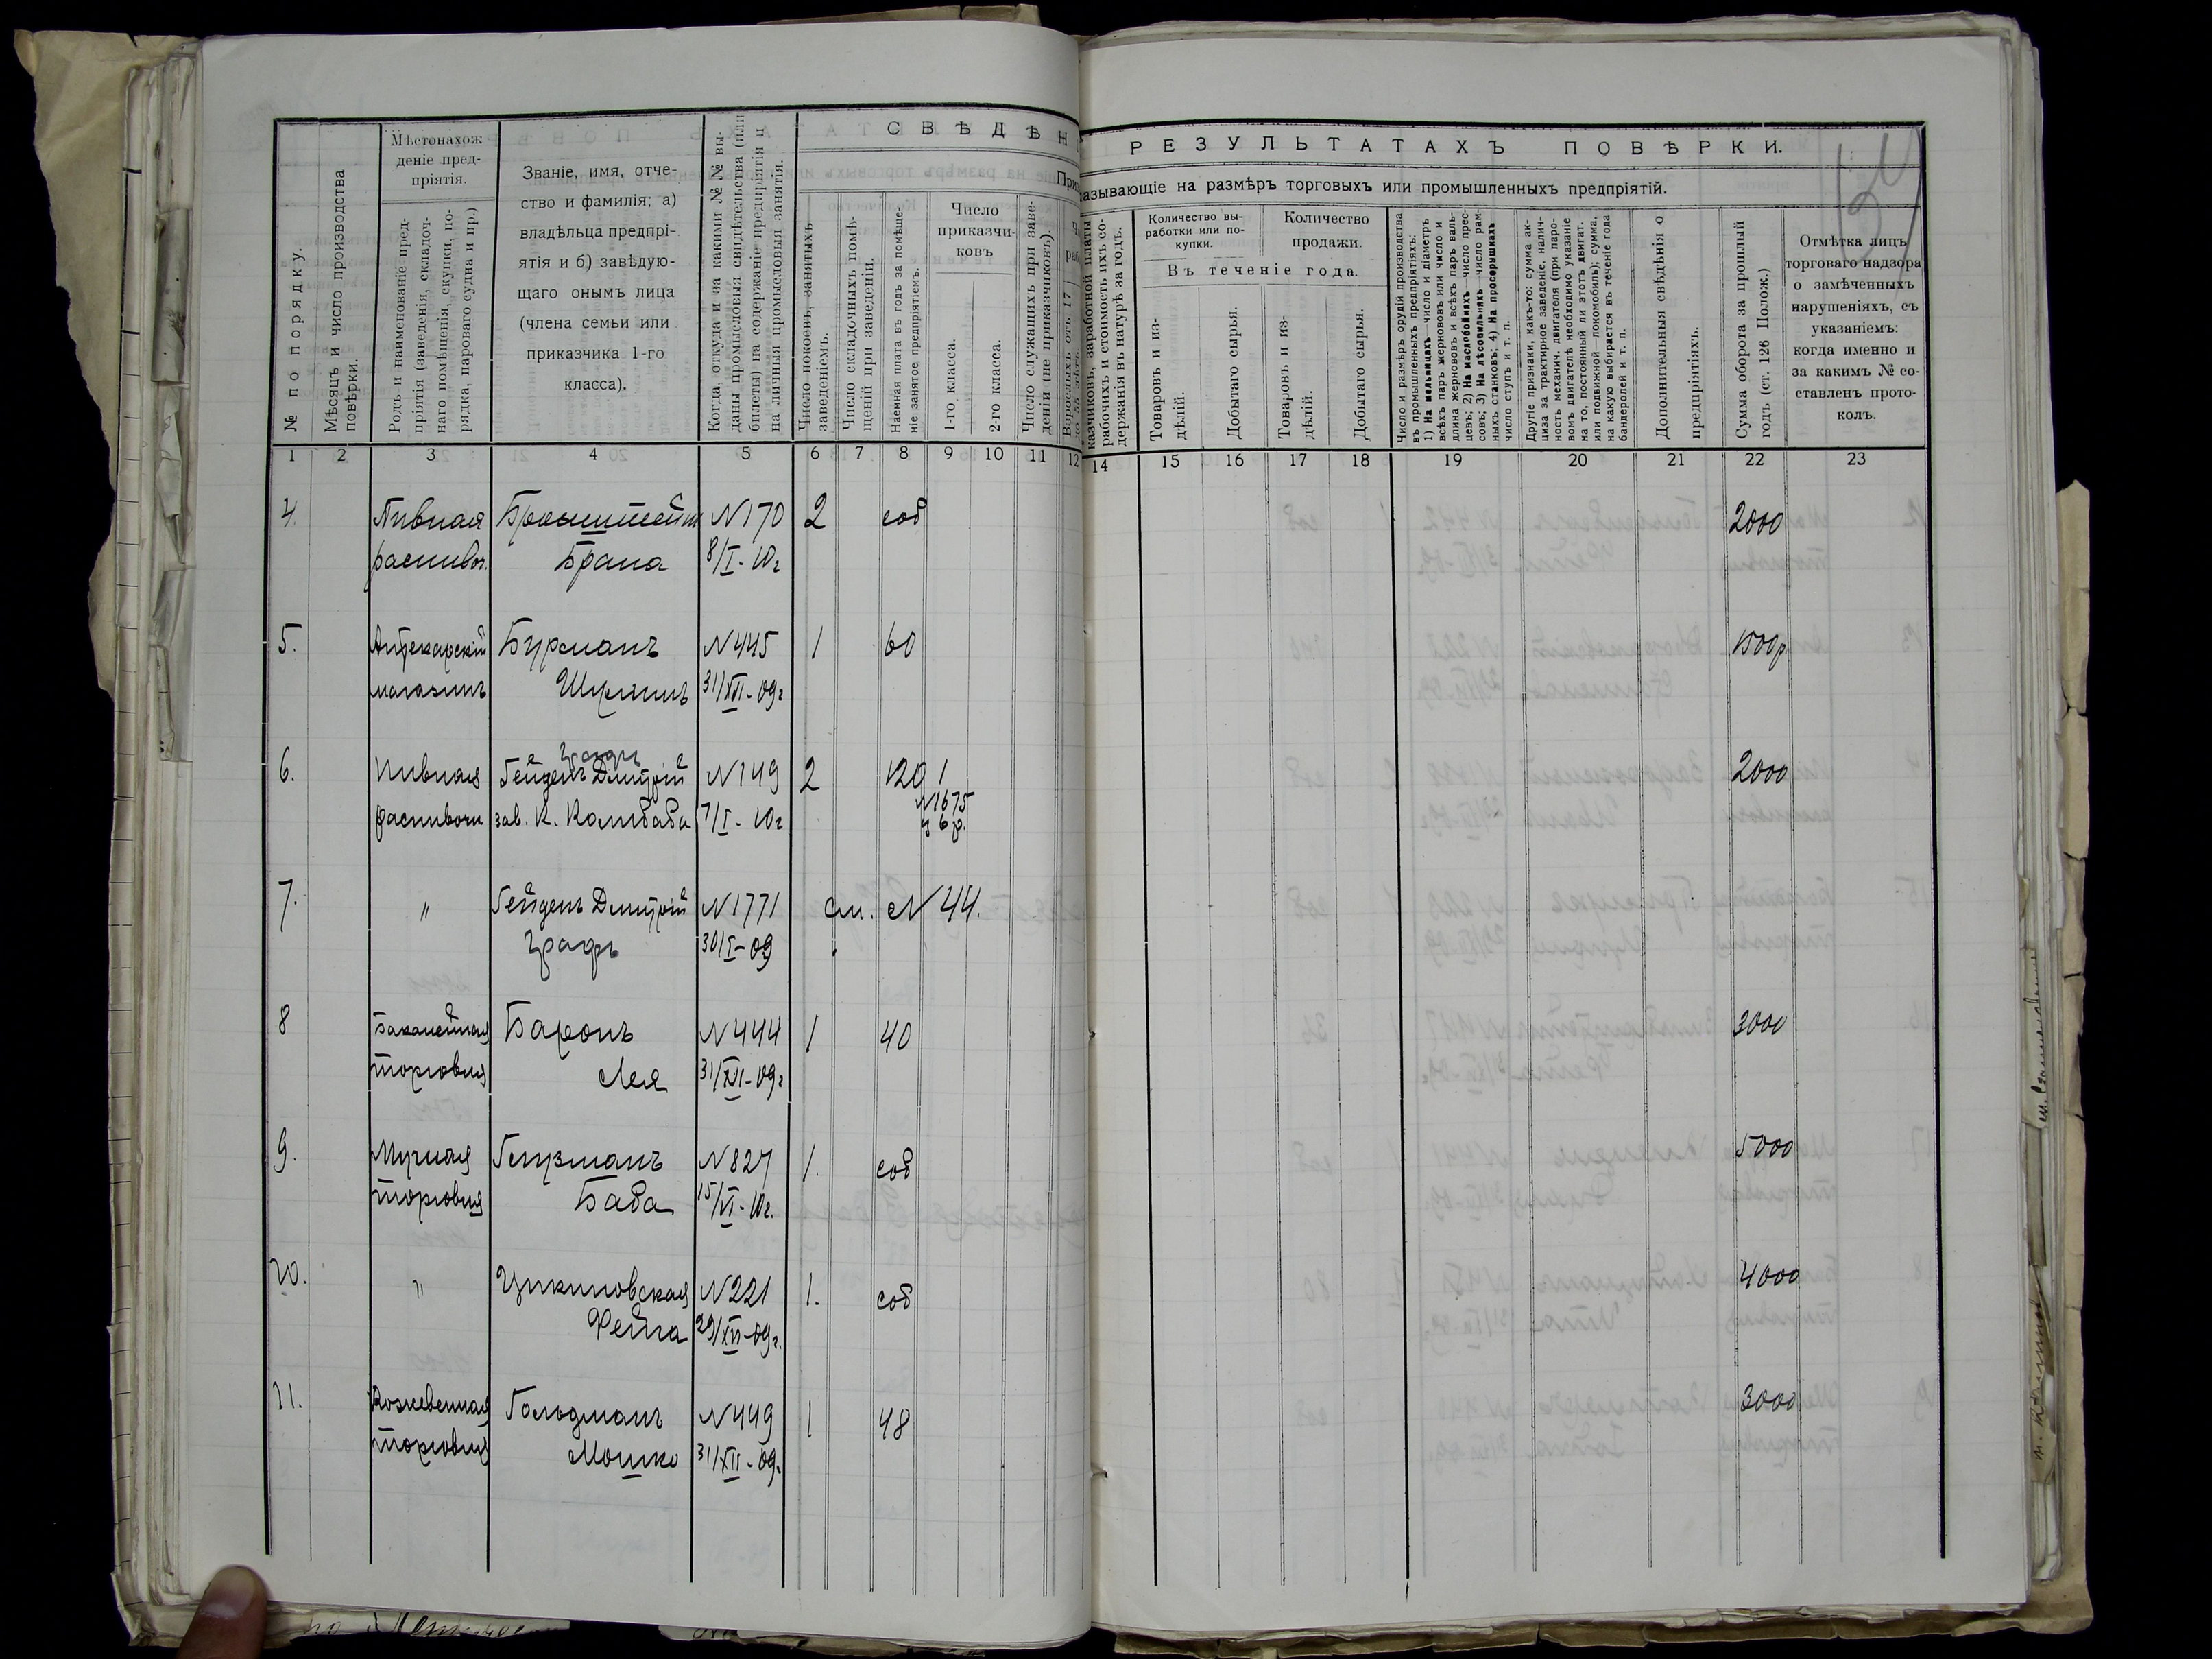 СВѢДѢН
РЕЗУЛЬТАТАХЪ ПОВѢРКИ.
Приз
казывающіе на размѣръ торговыхъ или промышленныхъ предпріятій.
№ по порядку.
Мѣсяцъ и число производства
повѣрки.
Мѣстонахож
деніе пред-
пріятія.
Родъ и наименованіе пред-
пріятія (заведенія, складоч-
наго помѣщенія, скупки, по-
рядка, пароваго судна и пр.)
Званіе, имя, отче-
ство и фамилія; а)
владѣльца предпрі-
ятія и б) завѣдую-
щаго онымъ лица
(члена семьи или
приказчика 1-го
класса).
Когда, откуда и за какими №№ вы-
даны промысловыя свидѣтельства (или
билеты) на содержаніе предпріятія и
на личныя промысловыя занятія.
Число покоевъ, занятыхъ
заведеніемъ.
Число складочныхъ помѣ-
щеній при заведеніи.
Наемная плата въ годъ за помѣще-
ніе занятое предпріятіемъ.
Число
приказчи-
ковъ
1-го класса.
2-го класса.
Число служащихъ при заве-
деніи (не приказчиковъ).
Взрослыхъ отъ 17
казчиковъ, заработной платы
рабочихъ и стоимость ихъ со-
держанія въ натурѣ за годъ.
Количество вы-
работки или по-
купки.
Количество
продажи.
Въ теченіе года.
Товаровъ и из-
дѣлій.
Добытаго сырья.
Товаровъ и из-
дѣлій.
Добытаго сырья.
Число и размѣръ орудій производства
въ промышленныхъ предпріятіяхъ:
1) На мельницахъ число и діаметръ
всѣхъ паръ жернововъ или число и
длина жернововъ и всѣхъ паръ валь-
цевъ; 2) На маслобойняхъ число прес-
совъ; 3) На лѣсопильняхъ число рам-
ныхъ станковъ; 4) На просорушкахъ
число ступъ и т. п.
Другіе признаки, какъ-то: сумма ак-
циза за трактирное заведеніе, налич-
ность механич. двигателя (при паро-
вомъ двигателѣ необходимо указаніе
на то, постоянный ли этотъ двигат.
или подвижной—локомобиль); сумма,
на какую выбирается въ теченіе года
бандеролей и т. п.
Дополнительныя свѣдѣнія о
предпріятіяхъ.
Сумма оборота за прошлый
годъ (ст. 126 Полож.)
Отмѣтка лицъ
торговаго надзора
о замѣченныхъ
нарушеніяхъ, съ
указаніемъ:
когда именно и
за какимъ № со-
ставленъ прото-
колъ.
1 2 3 4 5 6 7 8 9 10 11 12 14 15 16 17 18 19 20 21 22 23
4. Пивная Бронштейн №170 2 соб 2000
распивоч. Брана 8/I-10г
5. Аптекарскій Бурманъ №445 1 60 1500р
магазинъ 31/XII-09г
графъ
6. Пивная Гейденъ Дмитрій №149 2 120 1 2000
распивочн зав. К. 7/I-10г №1675
6 р.
7. " Гейденъ Дмитрій №1771 см. №44.
графъ 30/I-09
8 Бакалейная Баронъ №444 1 40 3000
торговля Лея 31/XII-09г
9. Мучная Глузманъ №827 1. соб 5000
торговля Баба 15/VI-10г.
20. " Цикиновская №221 1. соб 4000
Фейга 29/XII-09г.
21. Кожевенная Голодманъ №449 1 48 3000
торговля Мошко 31/XII-09г